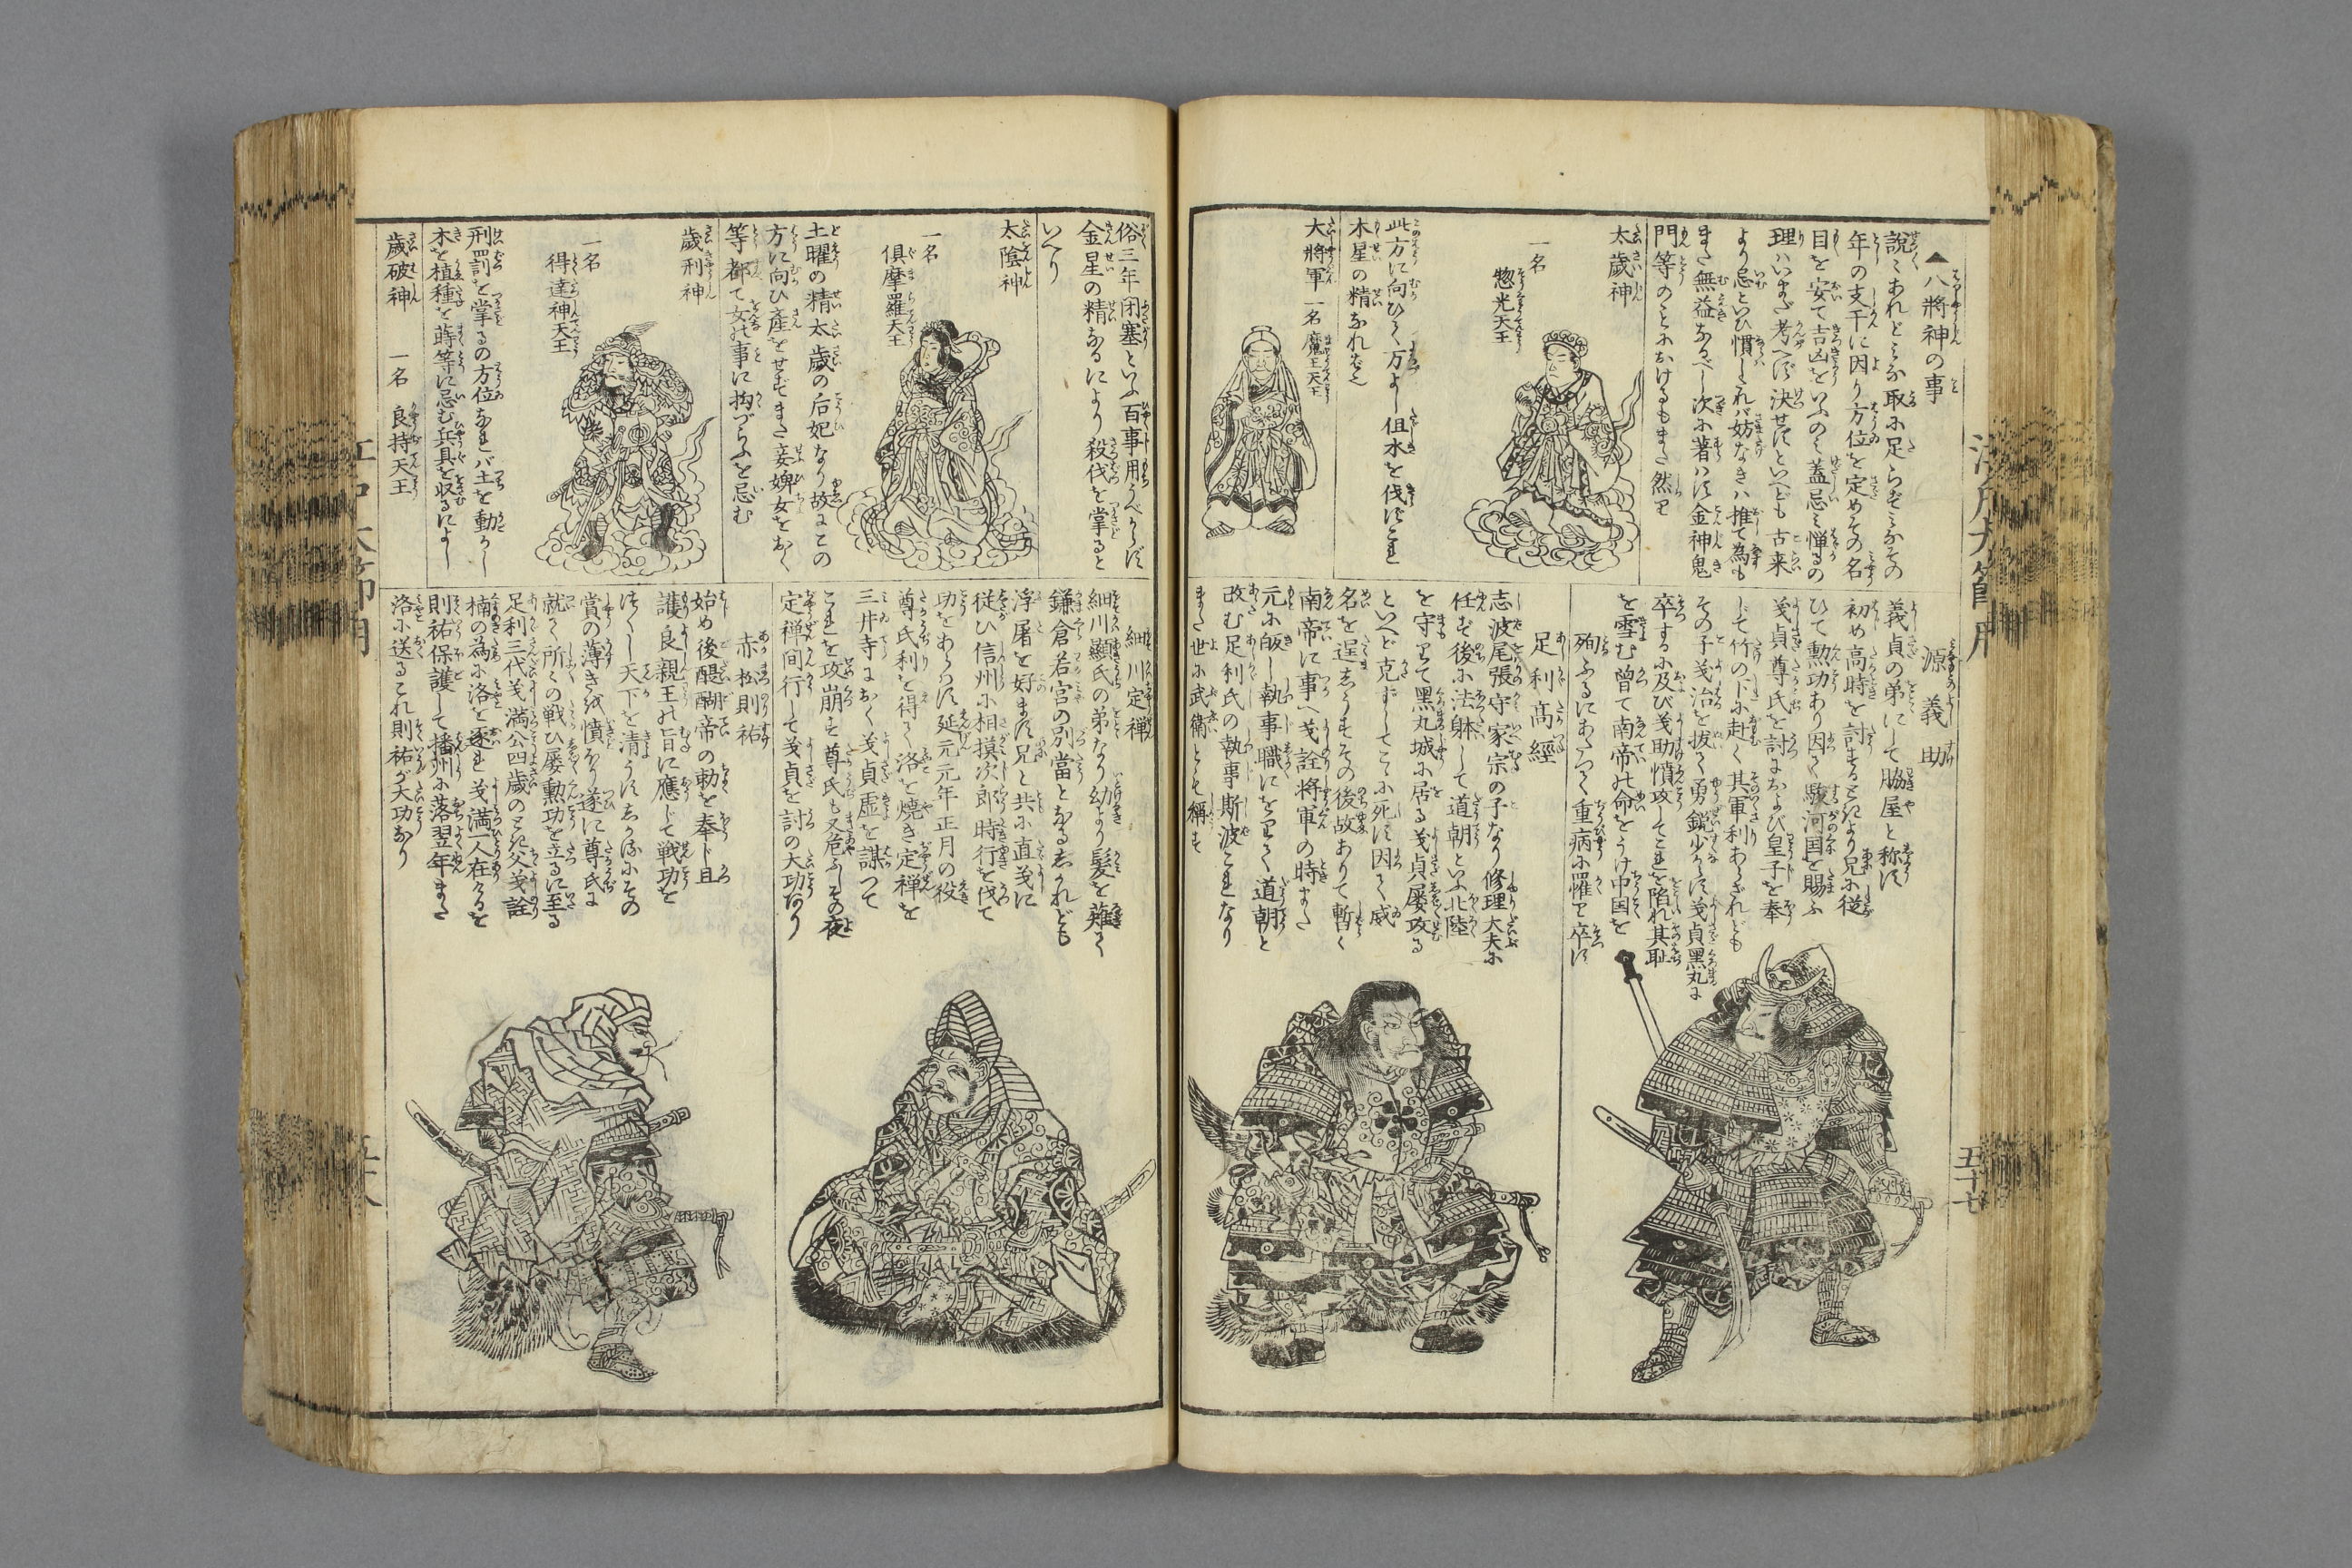 ▲八將神の事
説〻あれどミな取に足らずミなその
年の支干に因り方位を定めその名
目を安て吉凶をいふのミ蓋忌ミ憚るの
理ハいまだ考へず決せずといへども古来
より忌といひ慣したれバ妨なきハ推て為も
また無益なるべし次に著ハす金神鬼
門等のことにおけるもまた然り
太歳神
一名
惣光天王
此方に向ひて万よし但木を伐ず
木星の精なれバ也
大將軍 一名 魔王天王
源義助
義貞の弟にして脇屋と称す
初め高時を討するときより兄に従
ひて勲功あり因て駿河国を賜ふ
義貞尊氏を討におよび皇子を奉
じて竹の下に赴く其軍利あらざれども
その子義治を抜て勇鋭少からず義貞黒丸に
卒するに及び義助憤攻してこれを陥れ其恥
を雪む曽て南帝の命をうけ中国を
殉ふるにあたつて重病に罹り卒す
足利高經
志波尾張守家宗の子なり修理大夫に
任ず後に法躰して道朝といふ北陸
を守りて黒丸城に居る義貞屡攻る
といへど克ずしてこゝに死す因て威
名を逞しうすその後故ありて暫く
南帝に事へ義詮将軍の時また
元に皈し執事職にをりて道朝と
改む足利氏の執事斯波これなり
また世に武衛とも稱す
五十七
俗三年閉塞といふ百事用うべからず
金星の精なるにより殺伐を掌ると
いへり
太陰神
一名
倶摩羅天王
土曜の精太歳の后妃なり故にこの
方に向ひ産をせずまた妾婢女をおく
等都て女の事に拘づらふを忌む
歳刑神
一名
得達神天王
刑罰を掌るの方位なれバ土を動かし
木を植種を蒔等に忌む兵具を収るによし
歳破神 一名 良持天王
細川定禅
細川顯氏の弟なり幼より髪を薙て
鎌倉若宮の別當となるしかれども
浮屠を好まず兄と共に直義に
従ひ信州に相摸次郎時行を伐て
功をあらハす延元元年正月の役
尊氏利を得て洛を焼き定禅を
三井寺におく義貞虚を謀つて
これを攻崩す尊氏も又危ふしその夜
定禅间行して義貞を討の大功あり
赤松則祐
始め後醍醐帝の勅を奉じ且
護良親王の旨に應じて戦功を
つくし天下を清うすしかるにその
賞の薄きを憤をり遂に尊氏に
就く所〻の戦ひ屡勲功を立るに至る
足利三代義満公四歳のとき父義詮
楠の為に洛を逐れ義満一人在けるを
則祐保護して播州に落翌年また
洛に送るこれ則祐が大功なり